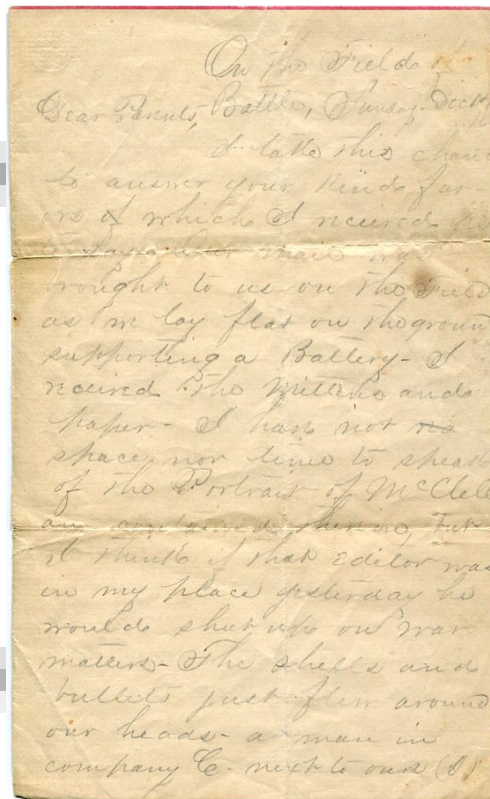 On the Fields of
Dear Parents, Battle, Sunday Dec 14
I take this chance
to answer your kind fav-
ors of which I received
Our mail was
brought to us on the Field
as we lay flat on the ground
supporting a Battery - I
received the Mittens and
paper - I have not no
space nor time to speak
of the Portrait of McClell
an contained therein, but
I think if that Editor was
in my place yesterday he
would shut up on war
matters - The shells and
bullets just flew around
our heads - a man in
company C - next to ours (D)